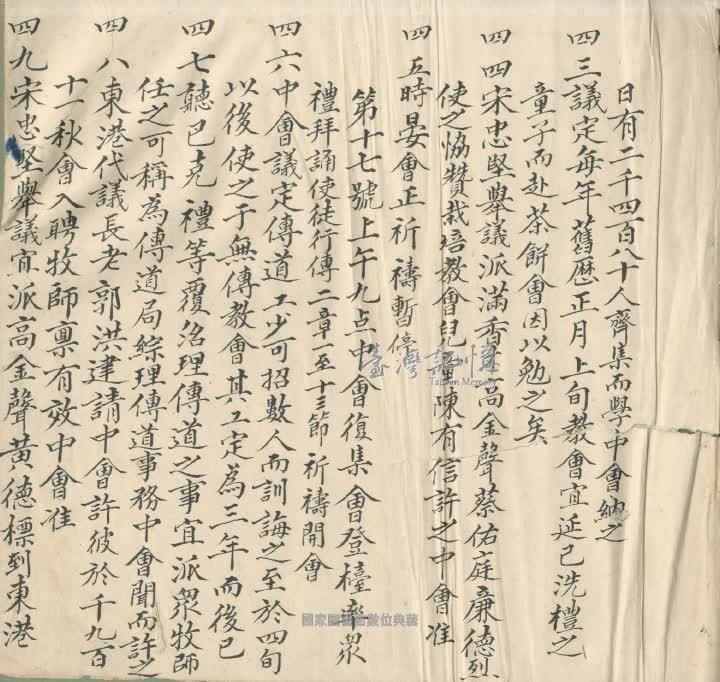 日有二千四百八十人齊集而學中會納之
四三議定每年舊歷正月上旬教會宜延已洗禮之
童子而赴茶餅會因以勉之矣
四四宋忠堅舉議派滿香 高金聲蔡佑庭廉德烈
使之協贊栽培教會兒童陳有信許之中會准
四五時晏會正祈禱暫停
第十七號上午九点中會復集會登檯率眾
禮拜誦使徒行傳二章一至十三節祈禱開會
四六中會議定傳道工少可招數人而訓誨之至於四旬
以後使之于無傳教會其工定為三年而後已
四七聽巴克禮等覆咨理傳道之事宜派眾牧師
任之可稱為傳道局綜理傳道事務中會聞而許之
四八東港代議長老郭洪建請中會許彼於千九百
十一秋會入聘牧師稟有效中會准
四九宋忠堅舉議宜派高金聲黃德標到東港
臺灣記憶
Taiwan Memory
國家圖書館數位典藏